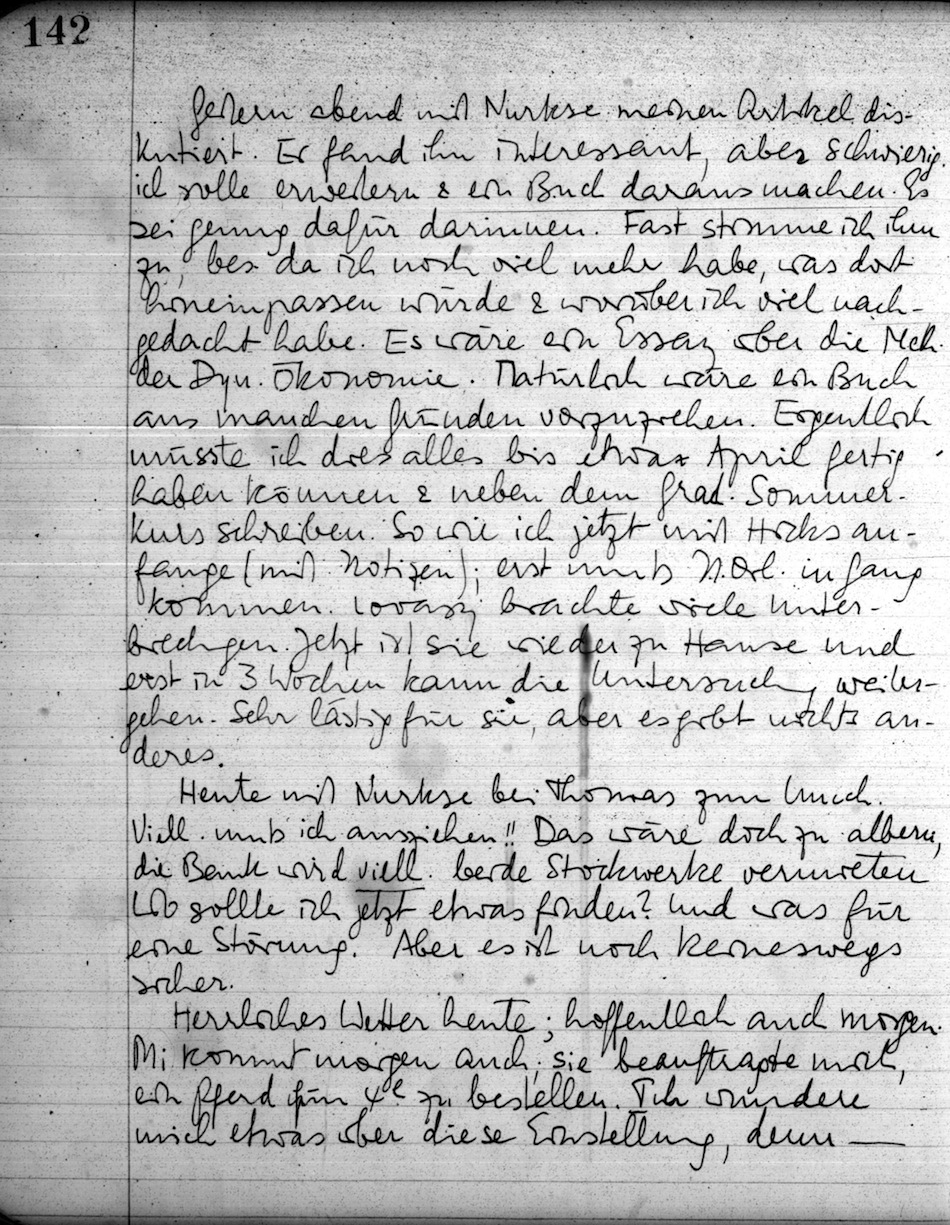 142
Gestern abend mit Nurkse meinen Artikel dis-
kutiert. Er fand ihn interessant, aber schwierig.
ich solle erweitern & ein Buch daraus machen. Es
sei genug dafür darinnen. Fast stimme ich ihm
zu, bes. da ich noch viel mehr habe, was dort
hineinpassen würde & worüber ich viel nach-
gedacht habe. Es wäre ein Essay über die Meth.
der Dyn. Ökonomie. Natürlich wäre ein Buch
aus manchen Gründen vorzuziehen. Eigentlich
müsste ich dies alles bis etwa April fertig
haben können & neben dem Grad. Sommer-
kurs schreiben. So wie ich jetzt mit Hicks an-
fange (mit Notizen); erst muß N.Orl. in Gang
kommen. Lovasy brachte viele Unter-
brechgen. Jetzt ist sie wieder zu Hause und
erst in 3 Wochen kann die Untersuchg weiter-
gehen. Sehr lästig für sie, aber es gibt nichts an-
deres.
Heute mit Nurkse bei Thomas zum Lunch.
Viell. muß ich ausziehen!! Das wäre doch zu albern,
die Bank wird viell. beide Stockwerke vermieten
Wo sollte ich jetzt etwas finden? Und was für
eine Störung. Aber es ist noch keineswegs
sicher.
Herrliches Wetter heute; hoffentlich auch morgen.
Mi kommt morgen auch; sie beauftragte mich,
ein Pferd für 4h zu bestellen. Ich wundere
mich etwas über diese Einstellung, denn —